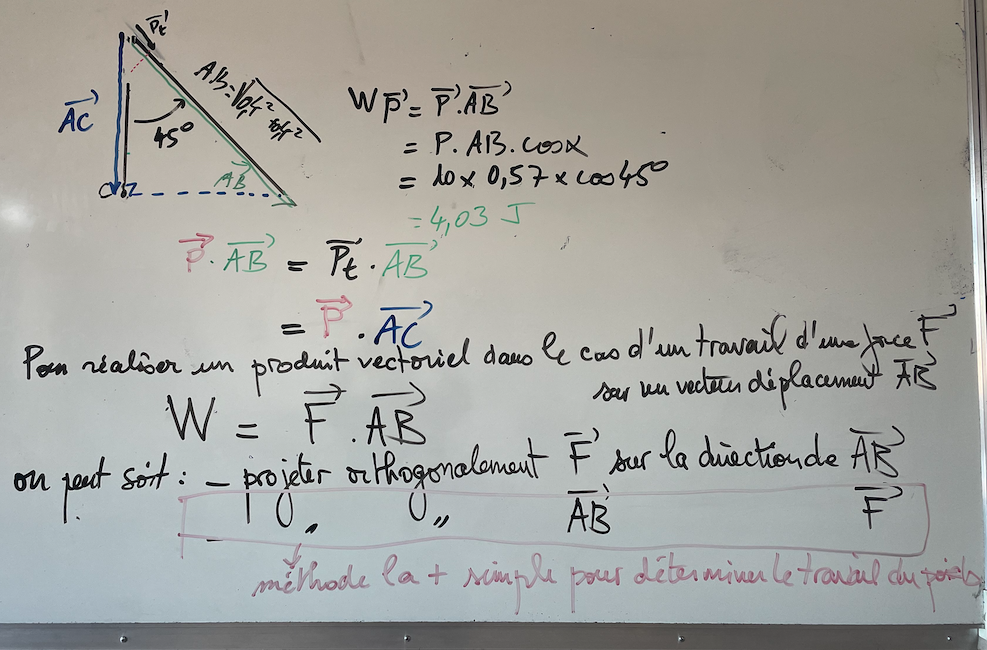 P⃗t
A⃗C⃗
45°
AB=√0,4² 0,4²
AB⃗
WP⃗ = P⃗.AB⃗
= P. AB. cosα
= 10 x 0,57 x cos 45°
= 4,03 J
P⃗.AB⃗ = P⃗t.AB⃗
= P⃗.AC⃗
Pour réaliser un produit vectoriel dans le cas d'un travail d'une force F⃗
sur un vecteur déplacement AB⃗
W = F⃗.AB⃗
on peut soit : _ projeter orthogonalement F⃗ sur la direction de AB⃗
_ " " AB⃗ F⃗
méthode la + simple pour déterminer le travail du poids